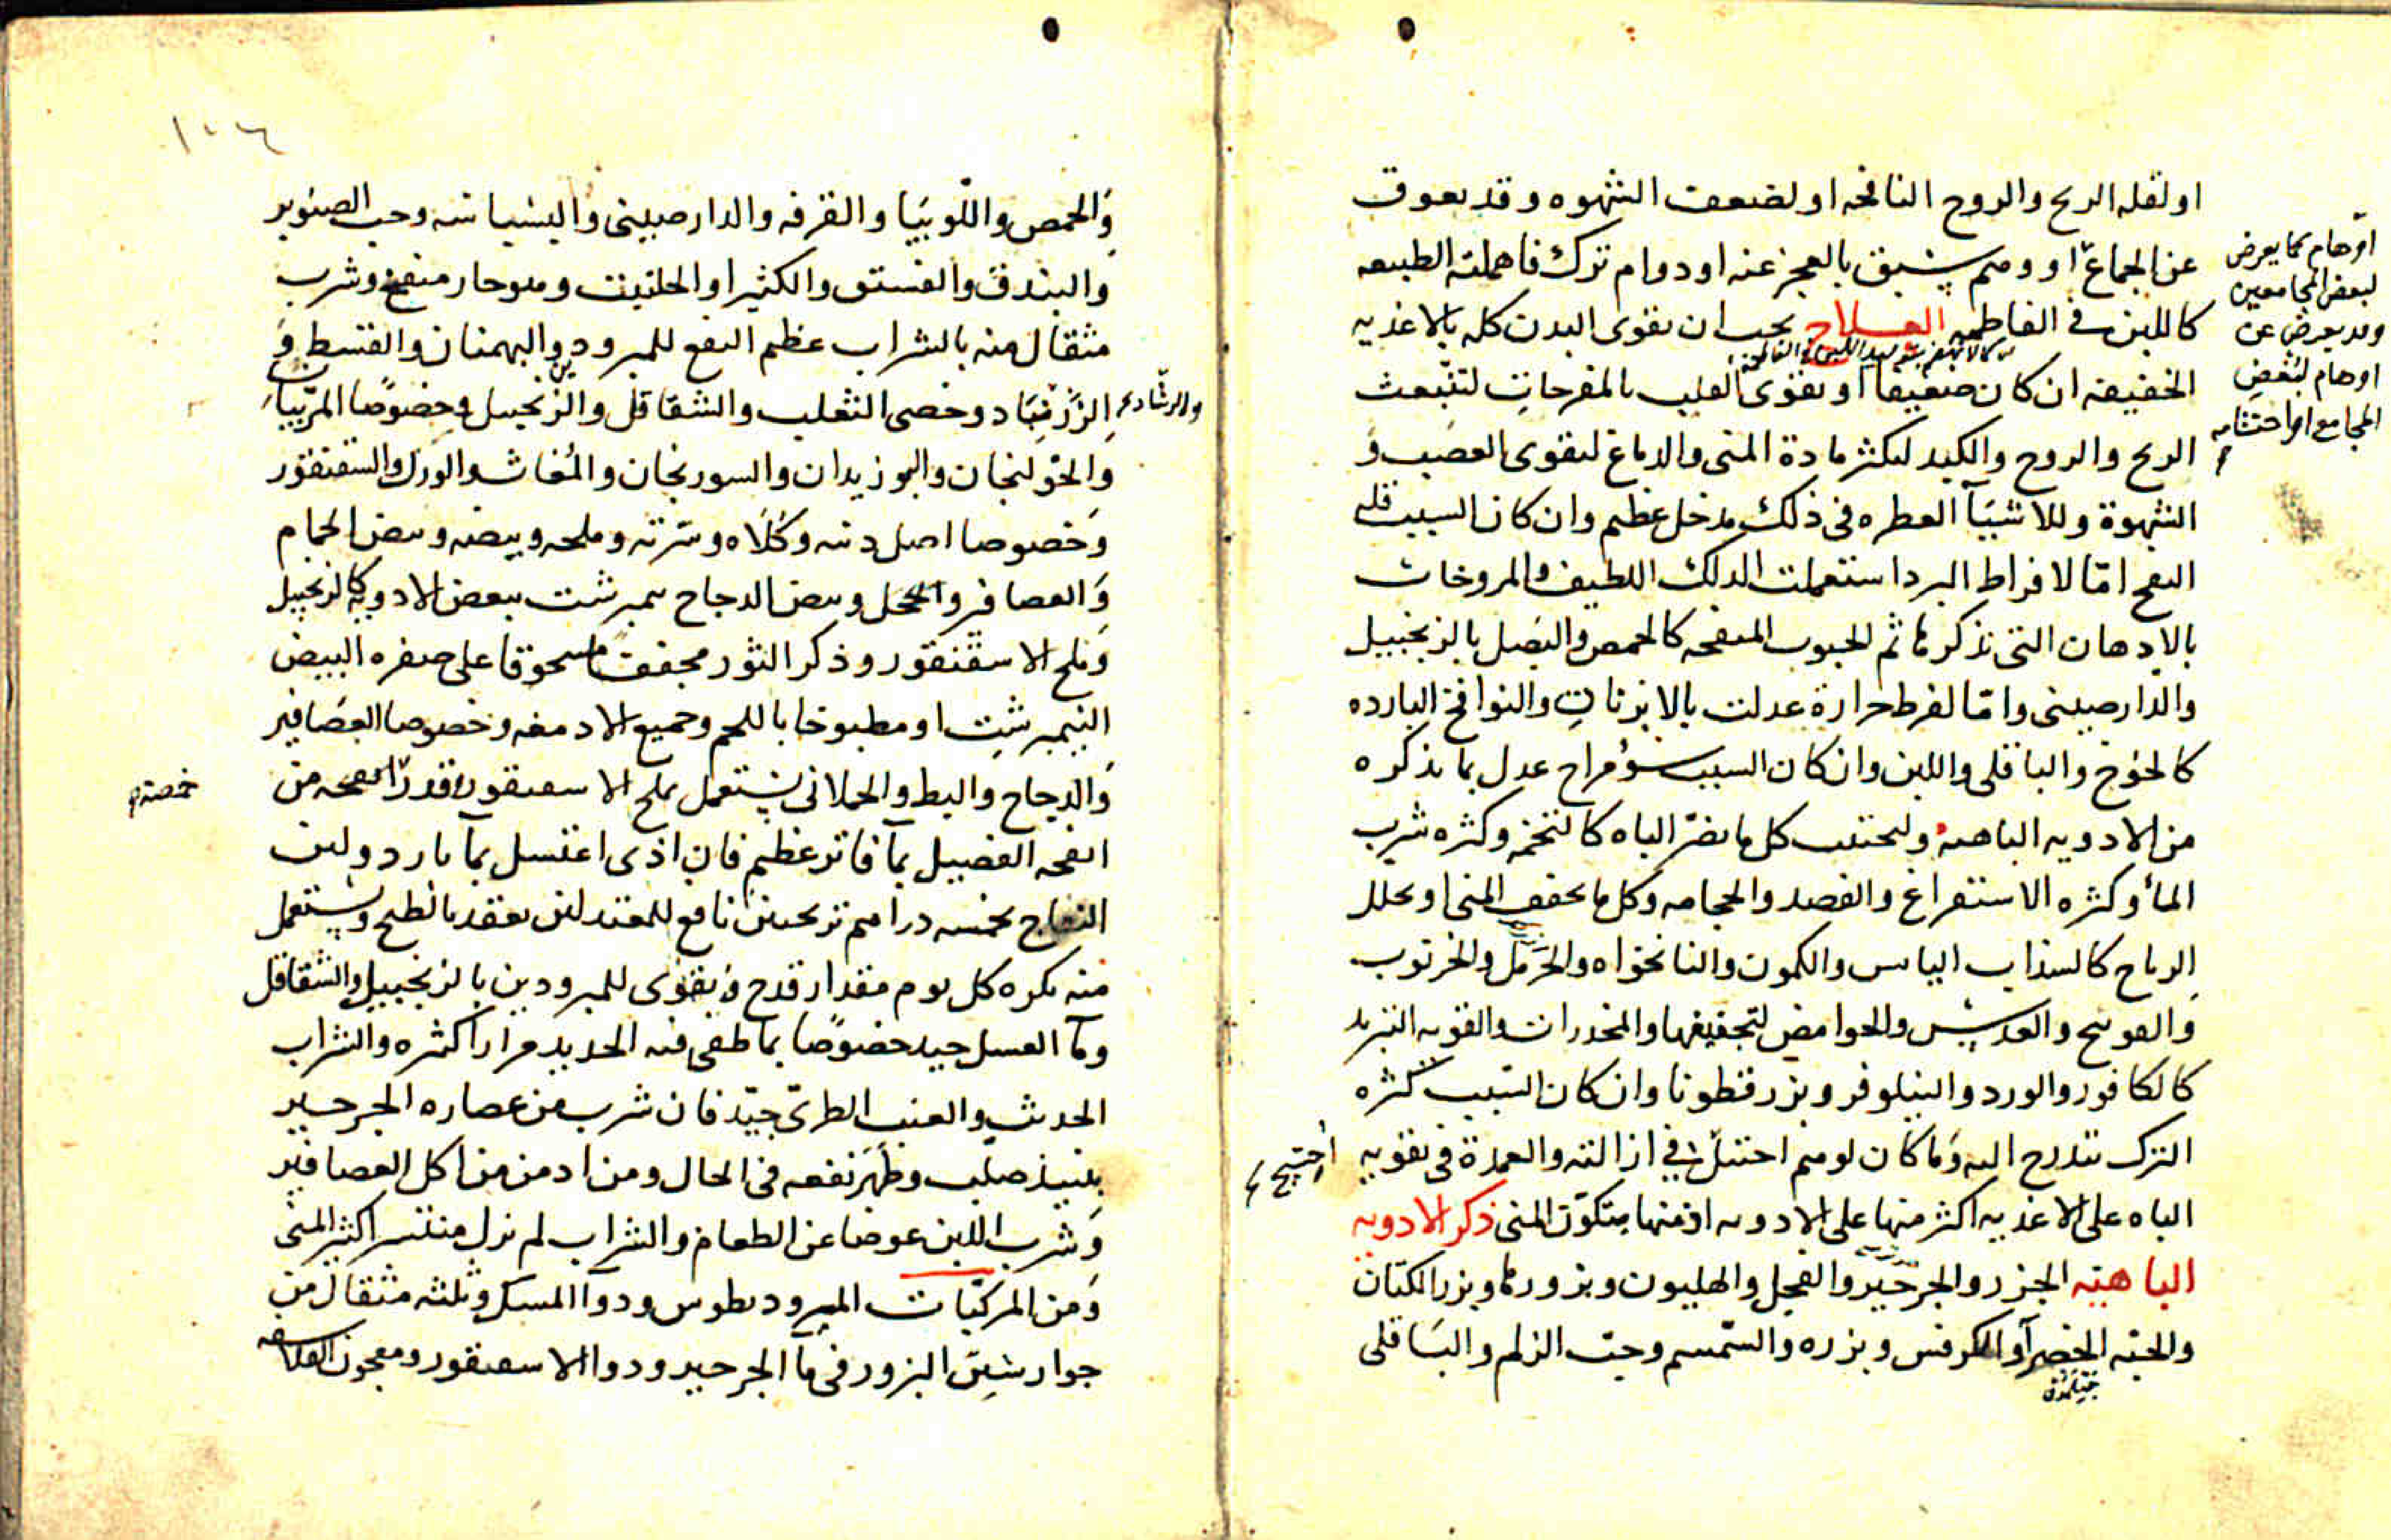 او لقله الريح والروح النافخه او لضعف الشهوه وقد يعوق
عن الجماع او وهم يسبق بالعجز عنه او دوام ترك فاهملته الطبيعه
كاللبن في الفاطمه العلاج يجب ان يقوى البدن كله بالاغذيه
الخفيفه ان كان ضعيفا او يقوى القلب بالمفرحات لتنبعث
الريح والروح والكبد لتكثر مادة المنى والدماغ ليقوى العصب و
الشهوة وللاشيآ العطره فى ذلك مدخل عظيم وان كان السبب قله
النفخ امّا لافراط البرد استعملت الدلك اللطيف والمروخات
بالادهان التى نذكرها ثم الحبوب المنفخه كالحمص والبصل بالزنجبيل
والدارصينى وامّا لفرط حرارة عدلت بالابزنات والنوافخ البارده
كالخوخ والباقلى واللبن وان كان السبب سؤ مزاج عدل بما نذكره
من الادويه الباهيه وليجتنب كل ما يضرّ الباه كالتخم وكثره شرب
المأ وكثره الاستفراغ والفصد والحجامه وكل ما يجفف المنى او يحلل
الرياح كالسذاب اليابس والكمون والنانخواه والحرمل والخرنوب
والعوسج والعدس والحوامض لتجفيفها والمخدرات والقويه التبريد
كالكافور والورد والنيلوفر وبزر قطونا وان كان السّبب كثره
الترك تتدرج اليه وما كان لوهم احتيل فى ازالته والعمدة فى تقويه
الباه على الاغذيه اكثر منها على الادويه اذ منها يتكوّن المنى ذكر الادويه
الباهيه الجزر والجرجير والفجل والهليون وبزورها وبزر الكتان
والحبّه الخضرآ والكرفس وبزره والسّمسم وحبّ الزلم والباقلى
اوهام كما يعرض
لبعض المجامعين
وقد يعرض عن
اوهام لبغض
المجامع او احتشامه
احتيج
١٠٦
والحمص واللّوبيا والقرفه والدارصينى والبسباسه وحب الصنوبر
والبندق والفستق والكثيرا والحلتيت وهو حار منفخ وشرب
مثقال منه بالشراب عظيم النفع للمبرودين والبهمنان والقسط و
الزرنباد وخصى الثعلب والشقاقل والزنجبيل وخصوصًا المربّيات
والخولنجان والبوزيدان والسورنجان والمغاث والورل والسقنقور
وخصوصا اصل ذنبه وكُلاه وسرّته وملحه وبيضه وبيض الحمام
والعصافير والحجل وبيض الدجاج نيمبرشت ببعض الادويه كالزنجبيل
وملح الاسقنقور وذكر الثور مجففا مسحوقا على صفره البيض
النيمبرشت او مطبوخا باللحم وجميع الادمغه وخصوصا العصافير
والدجاج والبط والحملان يستعمل بملح الاسقنقور وقدر حمصه من
انفحه الفصيل بمآ فاتر عظيم فان اذى اغتسل بمآ بارد ولبن
النعاج بخمسه دراهم ترنجبين نافع للمعتدلين يعقد بالطبخ ويستعمل
منه بكره كل يوم مقدار قدح ويقوى للمبرودين بالزنجبيل والشقاقل
ومآ العسل جيد خصوصًا بما طفى فيه الحديد مرارا كثره والشراب
الحديث والعنب الطرىّ جيّد فان شرب من عصاره الجرجير
بنبيذ صلب وظهر نفعه فى الحال ومن ادمن من اكل العصافير
وشرب اللبن عوضا عن الطعام والشراب لم يزل منتشرا كثير المنى
ومن المركبات المثروديطوس ودوآ المسك وثلثه مثقال من
جوارشن البزور فى مآ الجرجير ودوا الاسقنقور ومعجون الفلاسفه
والرشاد
حمصة